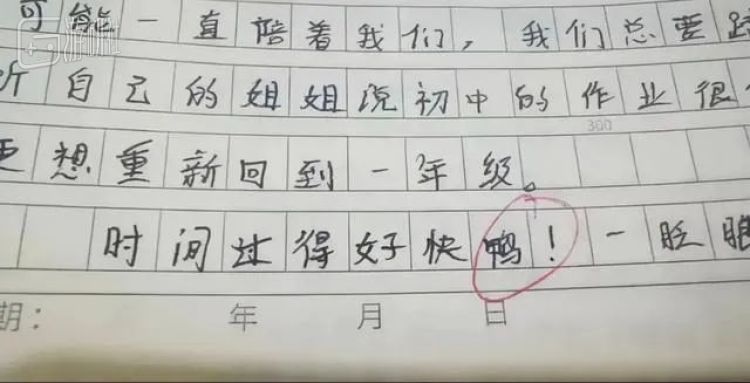 可能一直陪着我们，我们总要
听自己的姐姐说初中的作业很
更想重新回到一年级。
时间过得好快鸭！一眨眼
300
期： 年 月 日